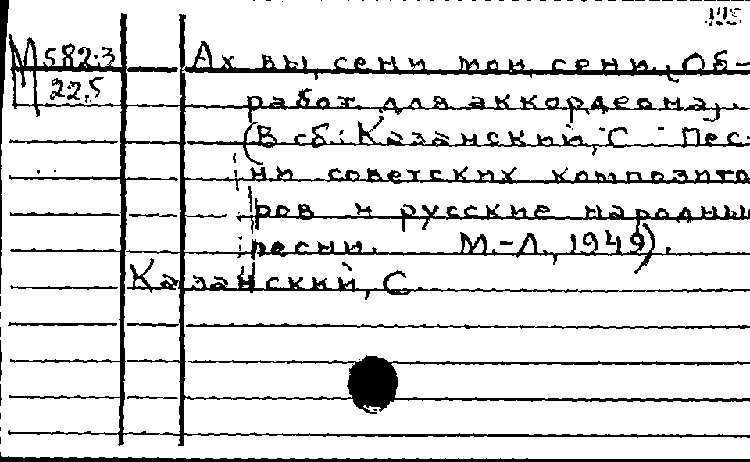 М 582:3 Ах вы, сени мои, сени. Об-
22,5 работ. для аккордеона.
(В сб.: Казанский, С. Пес-
ни советских композито
ров и русские народны
песни. М.-Л., 1949).
Казанский, С.